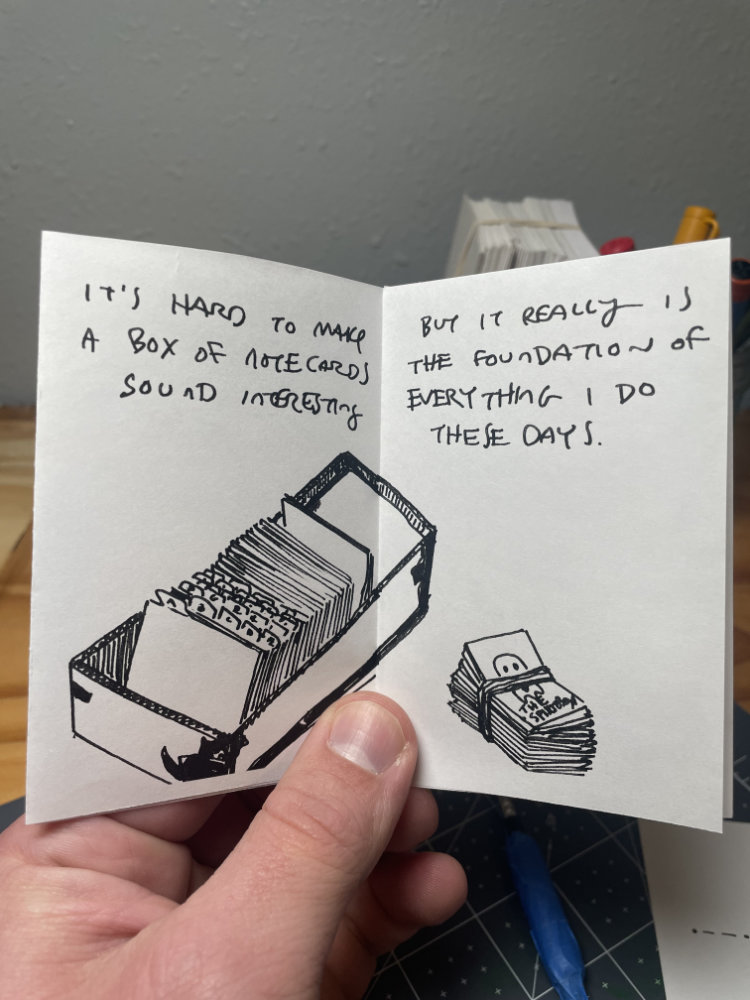 IT'S HARD TO MAKE
A BOX OF NOTECARDS
SOUND INTERESTING
BUT IT REALLY IS
THE FOUNDATION OF
EVERYTHING I DO
THESE DAYS.
THE